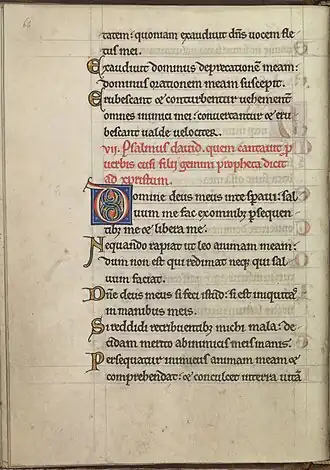 tatem: quoniam exaudiuit dn̄s uocem fle
tus mei.
Exaudiuit dominus deprecationē meam:
dominus orationem meam suscepit.
Erubescant ⁊ conturbentur uehement̄
omnes inimici mei: conuertantur ⁊ eru
bescant ualde uelocit̄.
vij. Psalmus dauid. quem cantauit p̱
uerbis cusi filij gemini propheta dicit
ad xpistum.
Domine deus meus inte sp̄aui: sal
uum me fac exomnibꝫ p̱sequen
tibꝫ me ⁊ libera me.
Nequando rapiat ut leo animam meam:
dum non est qui redimat neqꝫ qui sal
uum faciat.
Dn̄e deus meus si feci istud: si est iniquitaˢ
in manibus meis.
Si reddidi retribuentibꝫ michi mala: de
cidam merito abinimicis meis inanis.
Persequatur inimicus animam meam ⁊
comprehendat: ⁊ conculcet interra uitā